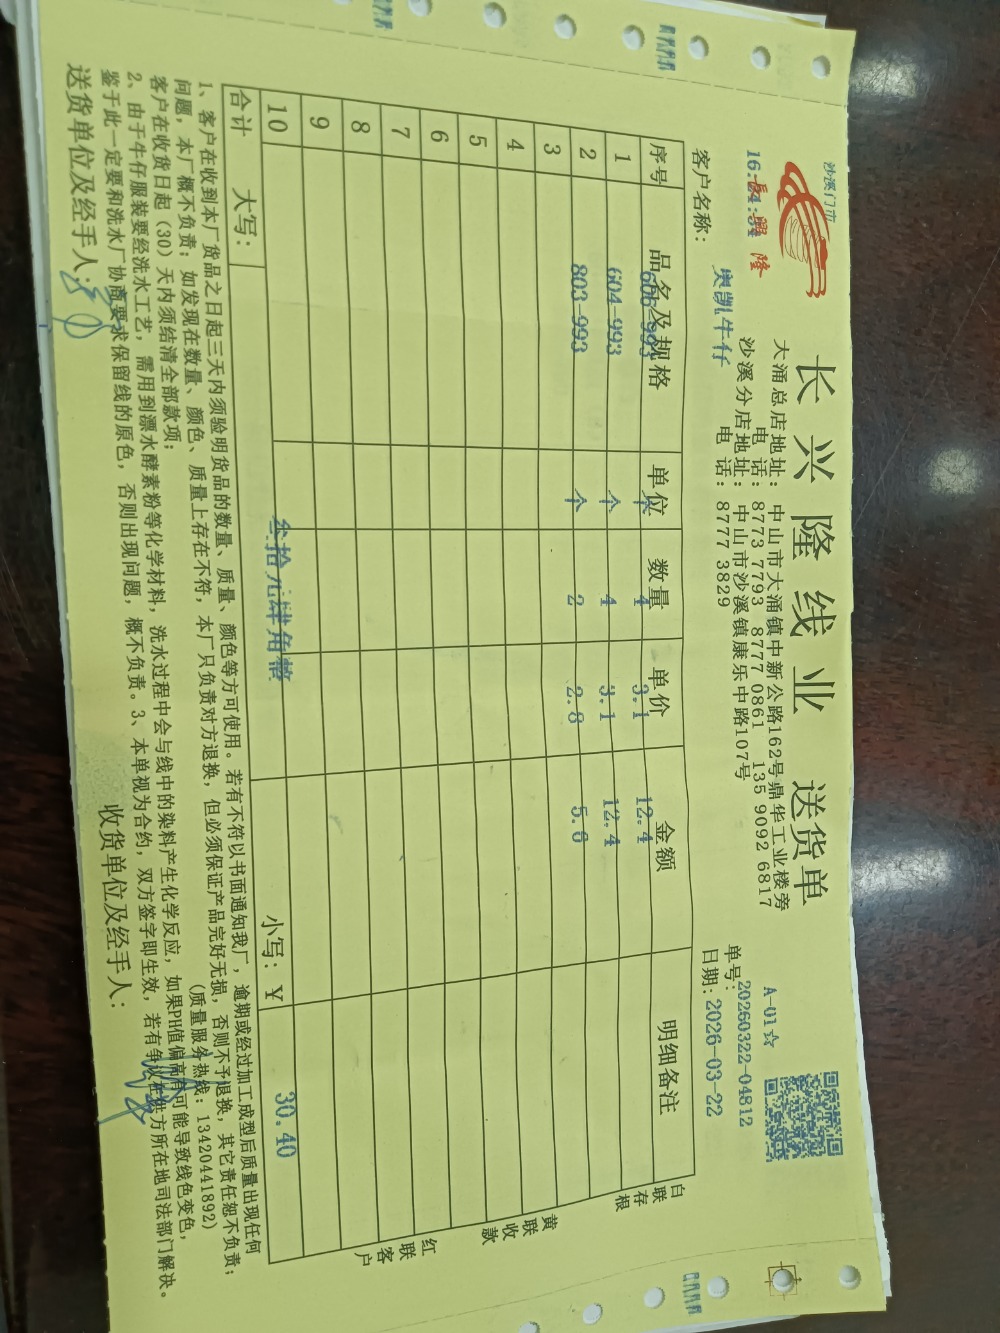 沙溪门市
16:04:54
長興隆
长兴隆线业 送货单
大涌总店地址: 中山市大涌镇中新公路162号鼎华工业楼旁
电 话: 8773 7793 8777 0861 135 9092 6817
沙溪分店地址: 中山市沙溪镇康乐中路107号
电 话: 8777 3829
A-01☆
单号: 20260322-04812
日期: 2026-03-22
客户名称: 奥凯牛仔
序号 品名及规格 单位 数量 单价 金额 明细备注
606-993 个 4 3.1 12.4
1 604-993 个 4 3.1 12.4
2 803-993 个 2 2.8 5.6
3
4
5
6
7
8
9
10
合计 大写: 叁拾元肆角整 小写: ¥ 30.40
白联存根
黄联收款
红联客户
1、客户在收到本厂货品之日起三天内须验明货品的数量、质量、颜色等方可使用。若有不符以书面通知我厂，逾期或经过加工成型后质量出现任何
问题，本厂概不负责；如发现在数量、颜色、质量上存在不符，本厂只负责对方退换，但必须保证产品完好无损，否则不予退换，其它责任恕不负责；
客户在收货日起（30）天内须结清全部款项； (质量服务热线: 13420441892)
2、由于牛仔服装要经洗水工艺，需用到漂水酵素粉等化学材料，洗水过程中会与线中的染料产生化学反应，如果PH值偏高有可能导致线色变色，
鉴于此一定要和洗水厂协商要求保留线的原色，否则出现问题，概不负责。3、本单视为合约，双方签字即生效，若有争议在供方所在地司法部门解决。
送货单位及经手人: 收货单位及经手人: